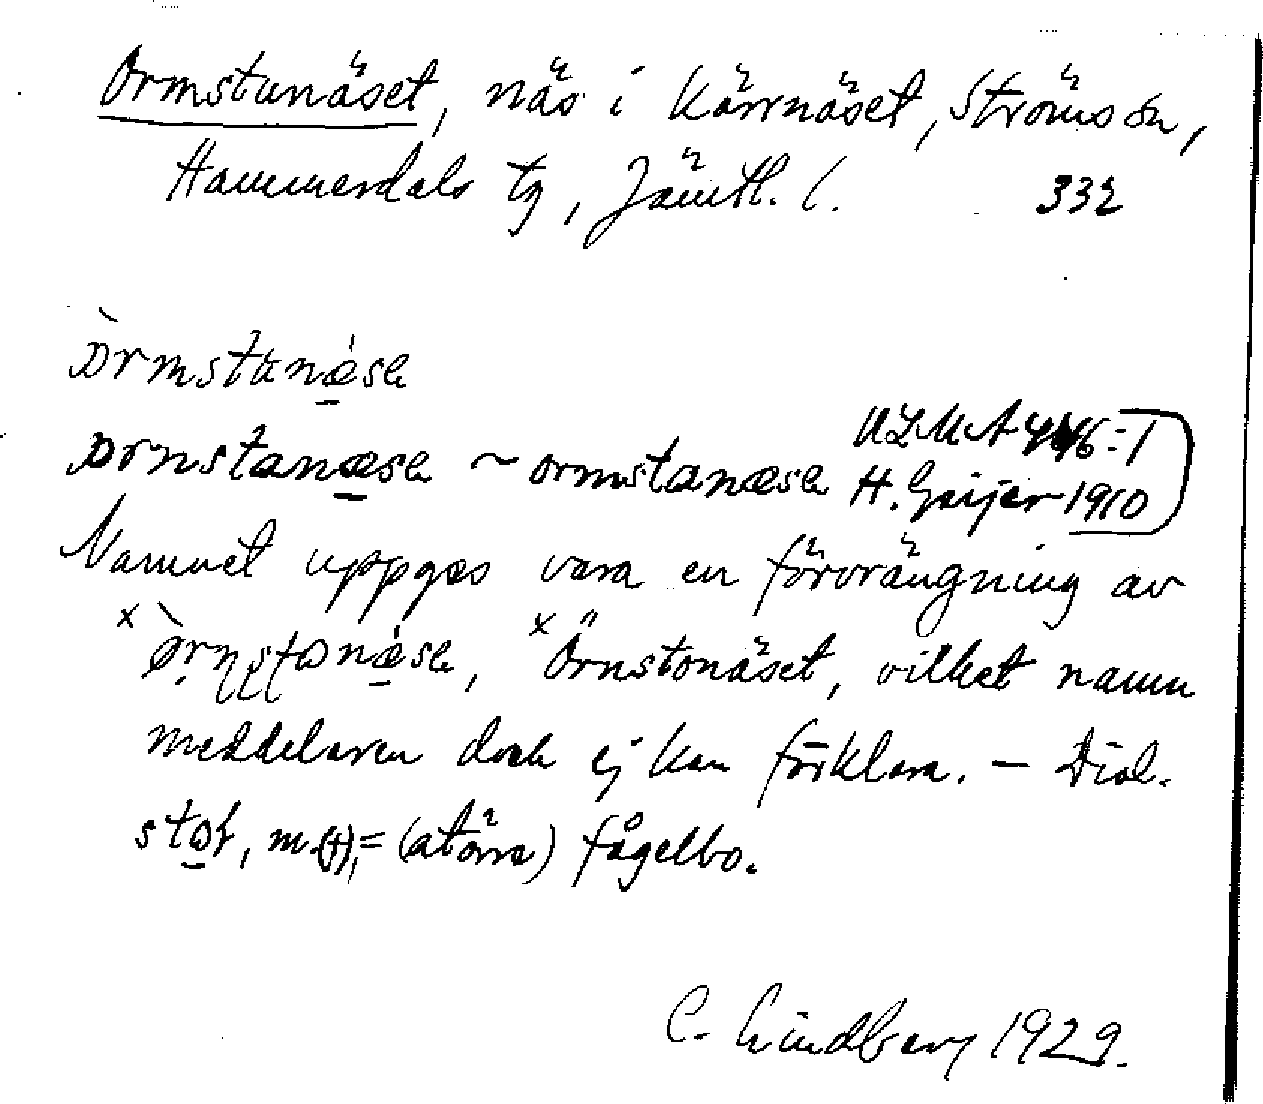 Ormstunäset, näs i Kärrnäset, Ströms sn,
Hammerdals tg, Jämtl. l. 332
òrmstunǽse
ornstanæse ~ ormstanæse ULMA 446:1
H. Geijer 1910
Namnet uppges vara en förvrängning av
x ø̀rnstonǽse, x Örnstonäset, vilket namn
meddelaren dock ej kan förklara. – Dial.
m. (†), = (större) fågelbo.
C. Lindberg 1929.